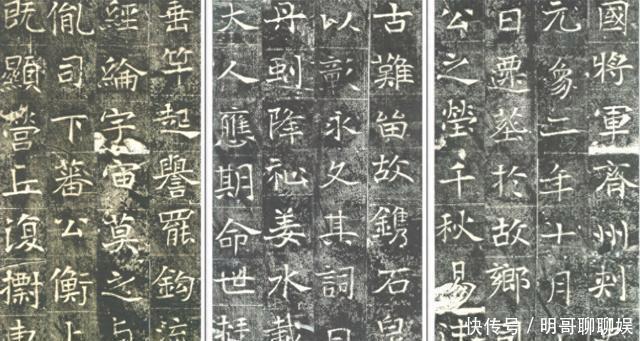 國將軍齊州刺
元象二年十月
日遷葬於故鄉
公之塋千秋易
古難留故鐫石
以彰永久其詞曰
丹剄降祉姜水載
大人應期命世
垂竿起譽罷鉤流
經綸宇宙莫之与
胤司下蕃公衡上
既顯營丘復
快传号/明哥聊聊娱